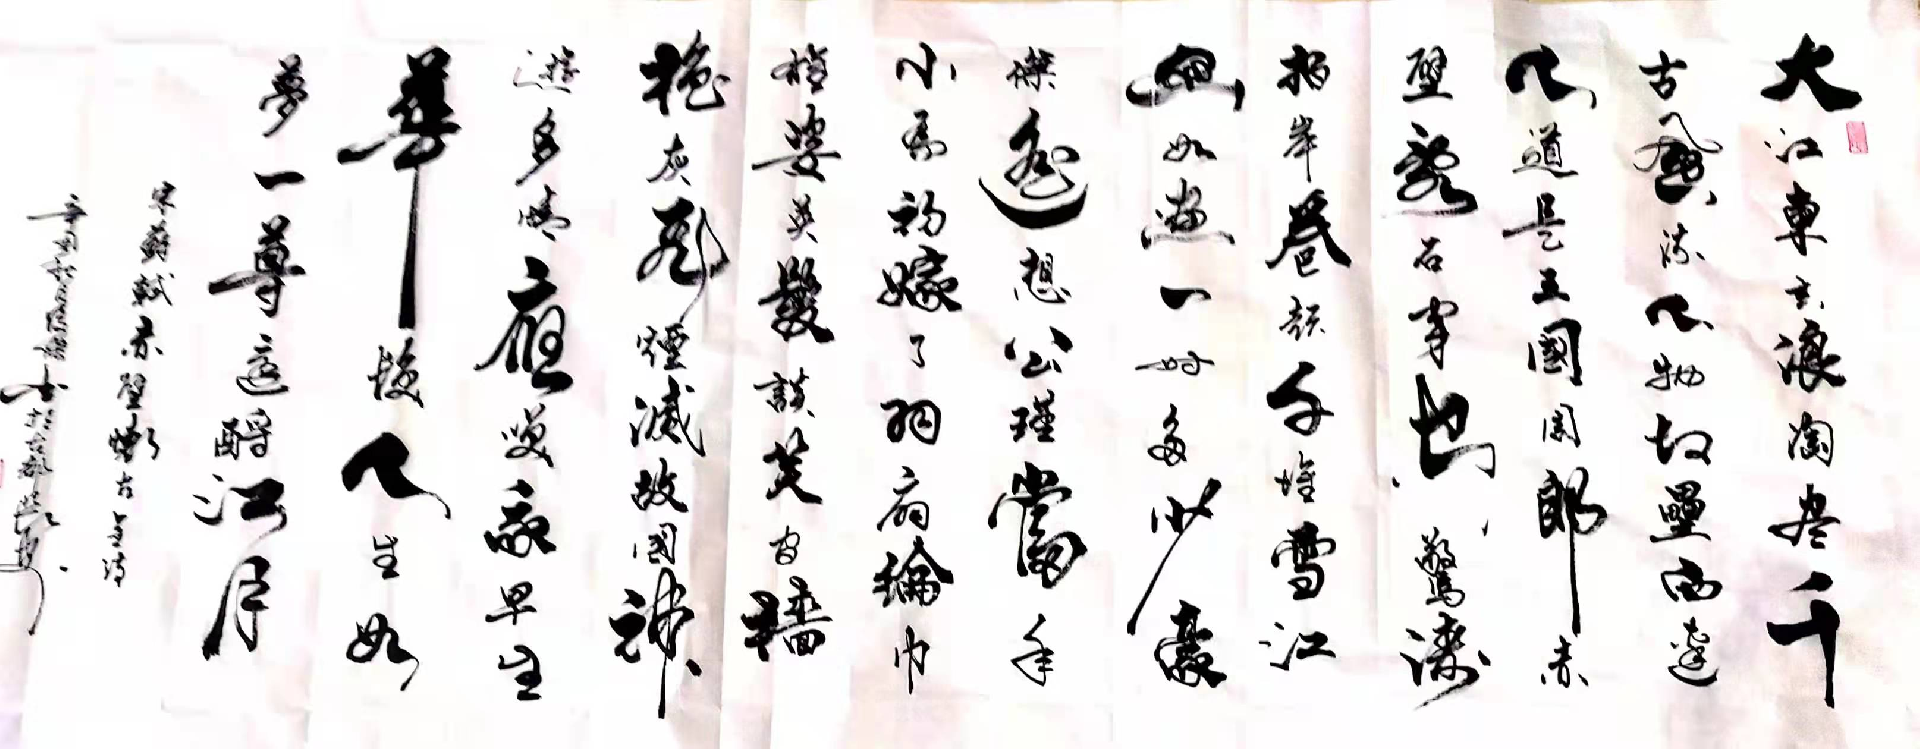 大江東去浪淘盡千
古風流人物故壘西邊
人道是三國周郎赤
壁亂石穿空驚濤
拍岸卷起千堆雪江
山如畫一時多少豪
傑遙想公瑾當年
小喬初嫁了羽扇綸巾
雄姿英發談笑間檣
櫓灰飛煙滅故國神
遊多情應笑我早生
華髮人生如
夢一尊還酹江月
宋蘇軾赤壁懷古
書於古都